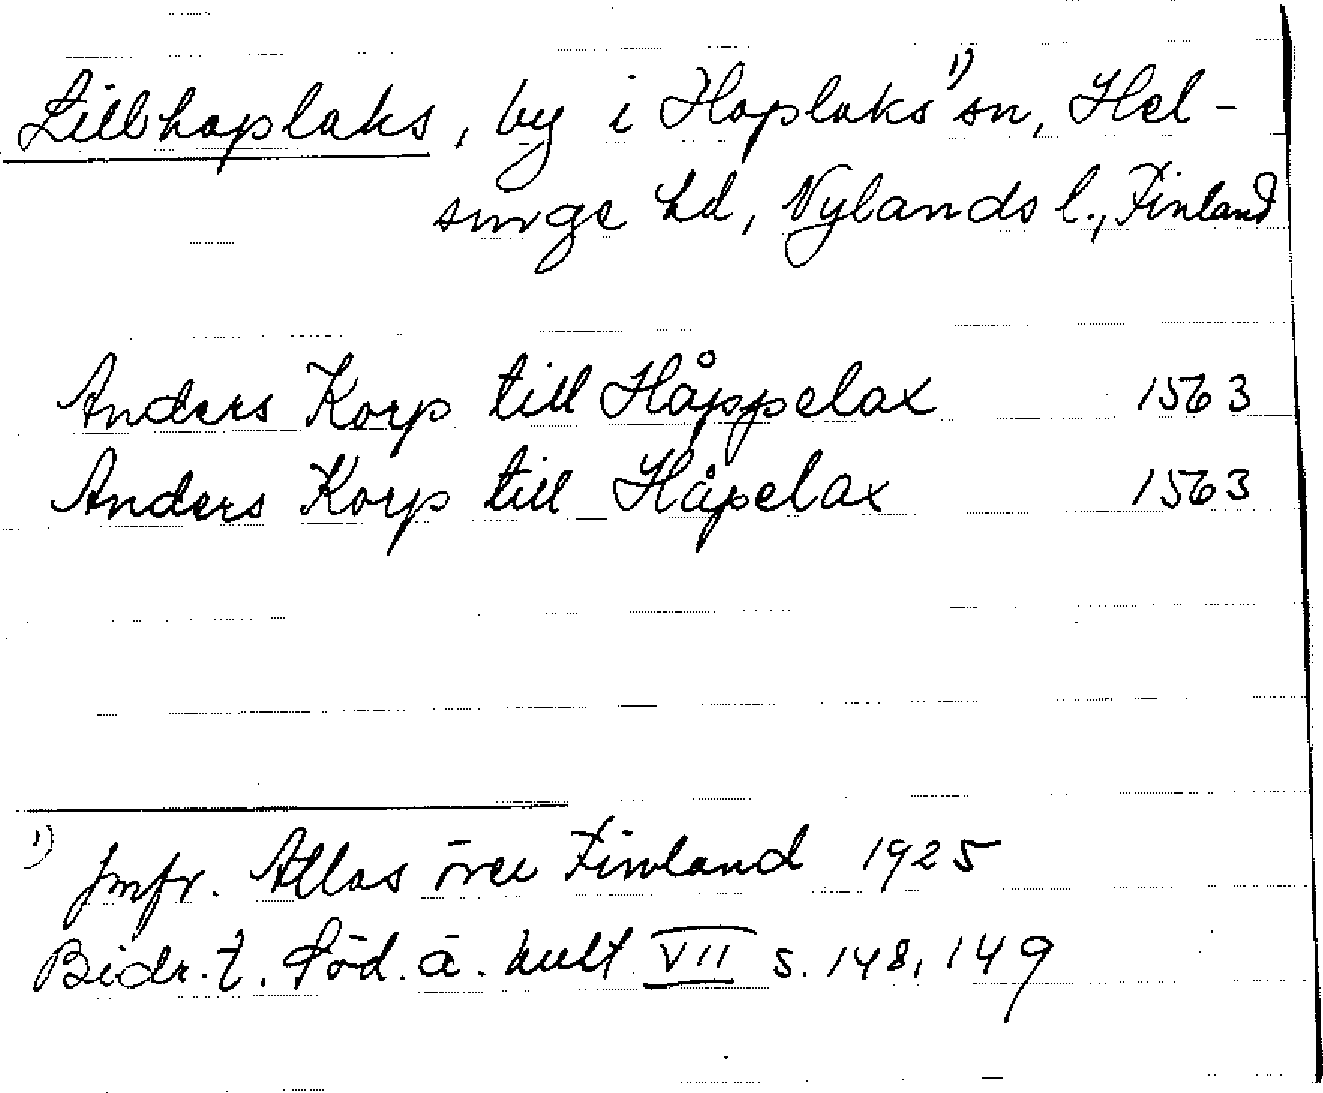 Lillhoplaks, by i Hoplaks ¹⁾ sn, Hel-
singe hd, Nylands l., Finland
Anders Korp till Håppelax 1563
Anders Korp till Håpelax 1563
¹⁾ Jmfr. Atlas över Finland 1925
Bidr. t. Söd. ä. kult VII s. 148, 149